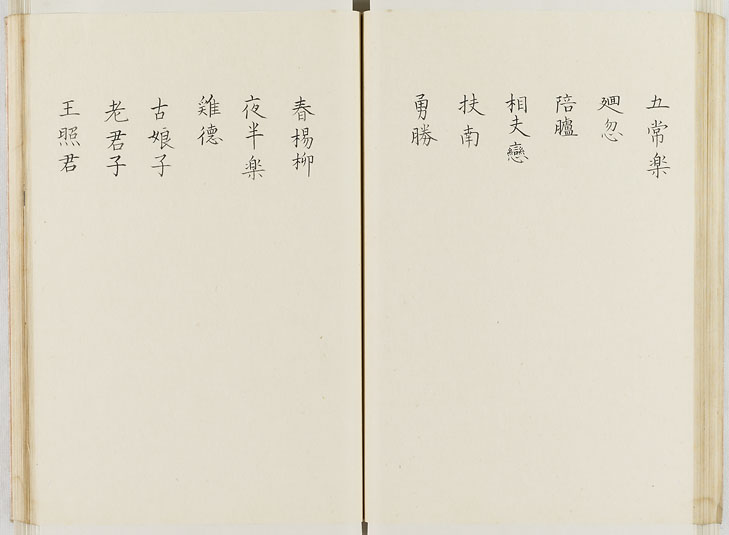 五常楽
廻忽
陪臚
相夫戀
扶南
勇勝
春楊柳
夜半楽
雞德
古娘子
老君子
王照君